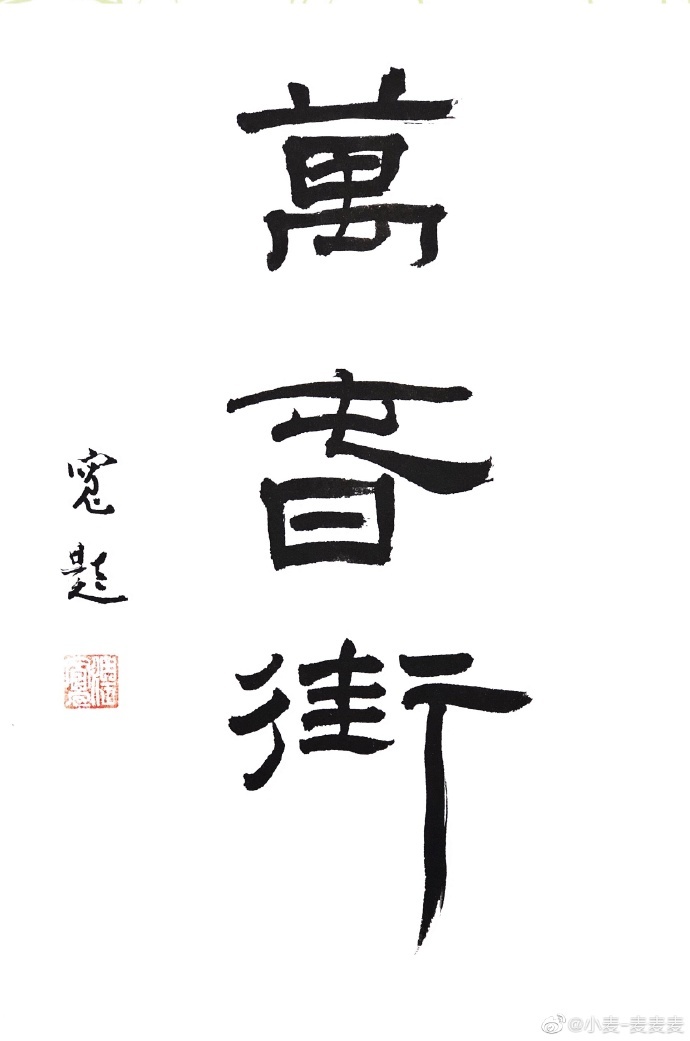 萬旾街
寬題
@小麦-麦麦麦